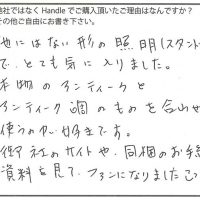 他社ではなく Handle でご購入頂いたご理由はなんですか?
その他ご自由にお書き下さい。
他にはない形の照明(スタント
で、とても気に入りました。
本物のアンティークと
アンティーク調のものを合わせ
使うのが好きです。
御社のサイトや、同梱のお手紙
資料を見て、ファンになりました